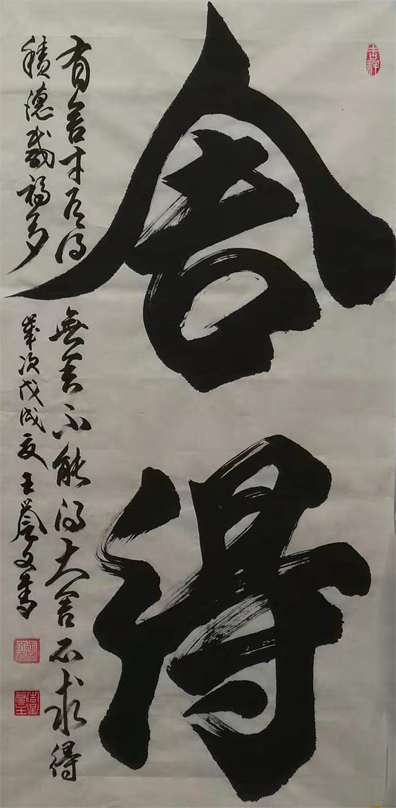 舍得
有舍才有得無舍不能得大舍不求得
積德載福多歲次戊戌夏王文書
吉祥